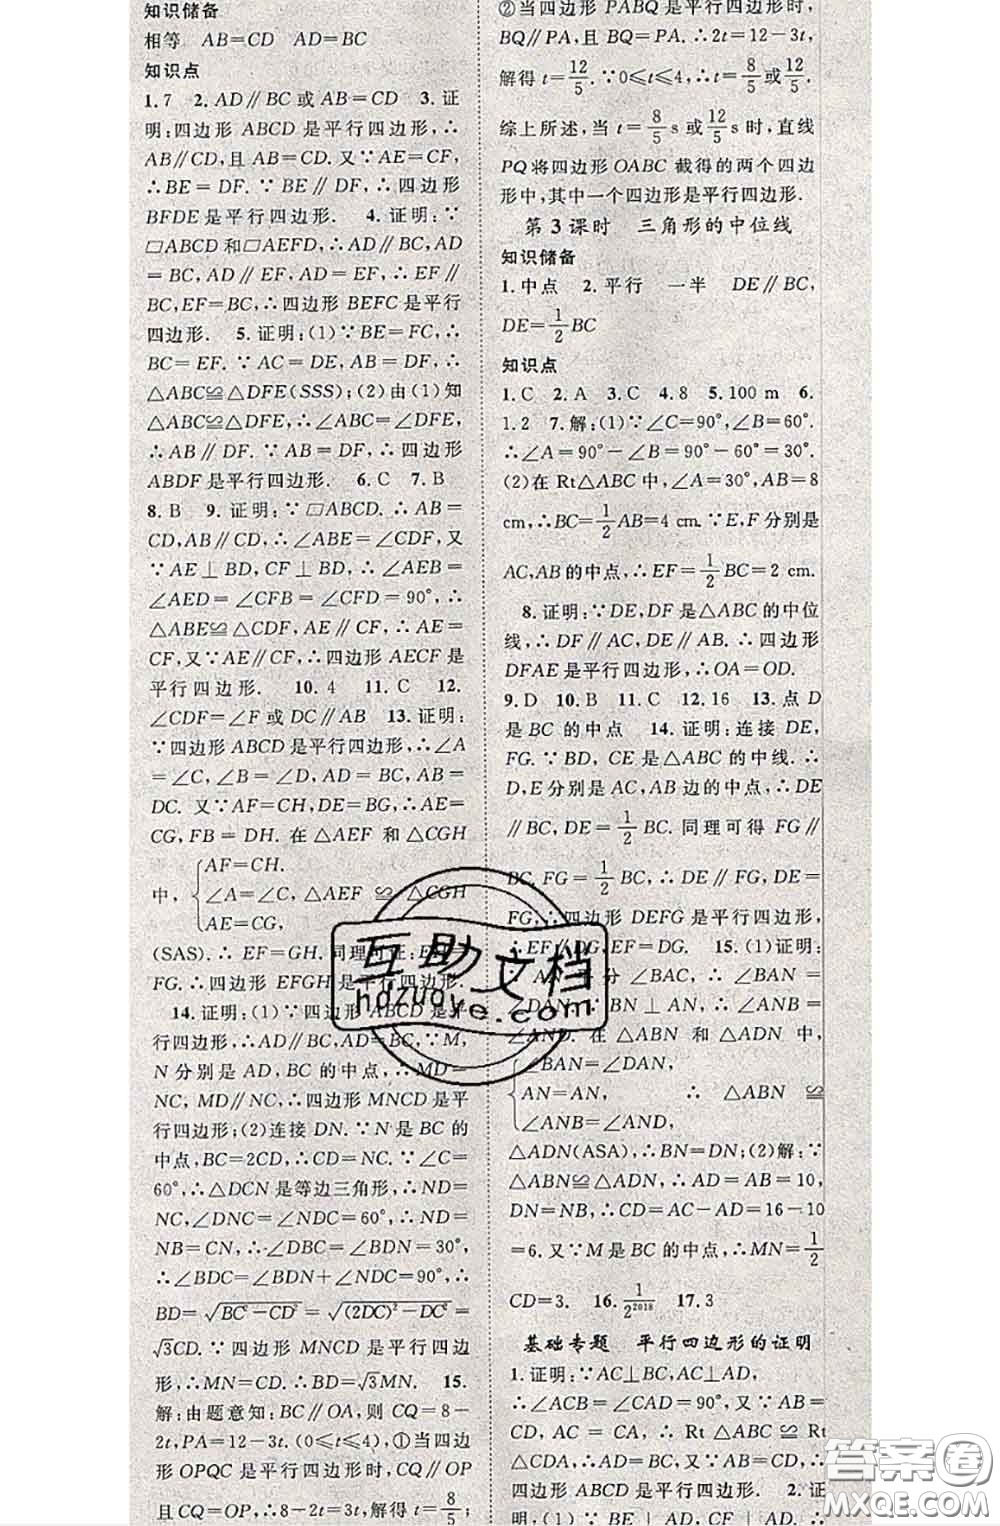 知识储备
相等 AB=CD AD=BC
知识点
1.7 2. AD∥BC或AB=CD 3. 证
明:四边形 ABCD 是平行四边形,∴
AB∥CD,且 AB=CD. 又∵AE=CF,
∴BE=DF. ∵BE∥DF,∴四边形
BFDE是平行四边形. 4. 证明:∵
□ABCD 和□AEFD,∴AD∥BC,AD
=BC,AD∥EF,AD=EF,∴EF∥
BC,EF=BC,∴四边形 BEFC 是平行
四边形. 5. 证明:(1)∵BE=FC,∴
BC=EF. ∵AC=DE,AB=DF,∴
△ABC≌△DFE(SSS);(2)由(1)知
△ABC≌△DFE,∴∠ABC=∠DFE,
∴AB∥DF. ∵AB=DF,∴四边形
ABDF是平行四边形. 6. C 7. B
8. B 9. 证明:∵□ABCD. ∴AB=
CD,AB∥CD,∴∠ABE=∠CDF,又
∵AE⊥BD,CF⊥BD,∴∠AEB=
∠AED=∠CFD=∠CFB=90°,∴
△ABE≌△CDF,AE∥CF,∴AE=
CF,又∵AE∥CF,∴四边形 AECF是
平行四边形. 10. 4 11. C 12.
∠CDF=∠F 或 DC∥AB 13. 证明:
∵四边形 ABCD是平行四边形,∴∠A
=∠C,∠B=∠D,AD=BC,AB=
DC. 又∵AF=CH,DE=BG,∴AE=
CG,FB=DH. 在△AEF 和△CGH
中,{AF=CH.
∠A=∠C,△AEF≌△CGH
AE=CG,
(SAS).∴EF=GH. 同理可证:EH=
FG.∴四边形 EFGH是平行四边形.
14. 证明:(1)∵四边形 ABCD 是平
行四边形,∴AD∥BC,AD=BC,∵M,
N分别是 AD,BC 的中点,∴MD=
NC,MD∥NC,∴四边形 MNCD是平
行四边形;(2)连接 DN. ∵N是BC的
中点,BC=2CD,∴CD=NC. ∵∠C=
60°,∴△DCN是等边三角形,∴ND=
NC,∠DNC=∠NDC=60°,∴ND=
NB=CN,∴∠DBC=∠BDN=30°,
∴∠BDC=∠BDN+∠NDC=90°,∴
BD=√(BC²-CD²)=√((2DC)²-DC²)=
√3CD. ∵四边形 MNCD是平行四边
形,∴MN=CD. ∴BD=√3MN. 15.
解:由题意知:BC∥OA,则 CQ=8-
2t,PA=12-3t.(0≤t≤4),①当四边
形 OPQC 是平行四边形时,CQ∥OP
且CQ=OP,∴8-2t=3t,解得 t=8/5;
②当四边形 PABQ是平行四边形时,
BQ∥PA,且BQ=PA. ∴2t=12-3t,
解得 t=12/5. ∵0≤t≤4,∴t=8/5或12/5.
综上所述,当 t=8/5 s 或12/5 s时,直线
PQ将四边形 OABC 截得的两个四边
形中,其中一个四边形是平行四边形.
第3课时 三角形的中位线
知识储备
1. 中点 2. 平行 一半 DE∥BC,
DE=1/2BC
知识点
1. C 2. A 3. C 4. 8 5. 100 m 6.
1.2 7. 解:(1)∵∠C=90°,∠B=60°.
∴∠A=90°-∠B=90°-60°=30°.
(2)在 Rt△ABC 中,∠A=30°,AB=8
cm,∴BC=1/2AB=4 cm. ∵E,F分别是
AC,AB的中点,∴EF=1/2BC=2 cm.
8. 证明:∵DE,DF是△ABC的中位
线,∴DF∥AC,DE∥AB. ∴四边形
DFAE是平行四边形,∴OA=OD.
9. D 10. B 11. C 12. 16 13. 点 D
是BC的中点 14. 证明:连接 DE,
FG. ∵BD,CE是△ABC 的中线. ∴
D,E分别是 AC,AB 边的中点,∴DE
∥BC,DE=1/2BC. 同理可得 FG∥
BC.FG=1/2BC,∴DE∥FG,DE=
FG,∴四边形 DEFG是平行四边形,
∴EF∥DG,EF=DG. 15. (1)证明:
∵AN平分∠BAC,∴∠BAN=
∠DAN ∵BN⊥AN,∴∠ANB=
∠AND. 在△ABN 和△ADN 中,
{∠BAN=∠DAN,
AN=AN, ∴△ABN≌
∠ANB=∠AND,
△ADN(ASA),∴BN=DN;(2)解:∵
△ABN≌△ADN,∴AD=AB=10,
DN=NB,∴CD=AC-AD=16-10
=6. 又∵M是BC的中点,∴MN=1/2
CD=3. 16. 1/2²⁰¹⁸ 17. 3
基础专题 平行四边形的证明
1. 证明:∵AC⊥BC,AC⊥AD,
∴∠ACB=∠CAD=90°,又∵AB=
CD,AC=CA,∴Rt△ABC≌Rt
△CDA,∴AD=BC,∵AB=CD,∴
四边形 ABCD 是平行四边形. 2. 证
明:(1)∵BE⊥AD,CF⊥AD,∴
互助文档
hdzuoye.com
答案圈
MXQE.COM